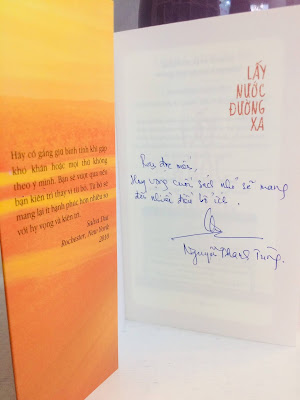 Hãy cố gắng giữ bình tĩnh khi gặp
khó khăn hoặc mọi thứ không
theo ý mình. Bạn sẽ vượt qua nếu
bạn kiên trì thay vì từ bỏ. Từ bỏ sẽ
mang lại ít hạnh phúc hơn nhiều so
với hy vọng và kiên trì.
Salva Dut
Rochester, New York
2010
LẤY
NƯỚC
ĐƯỜNG
XA
Bạn đọc mến,
Hy vọng cuốn sách nhỏ sẽ mang
đến nhiều điều bổ ích.
Nguyễn Thanh Tùng.